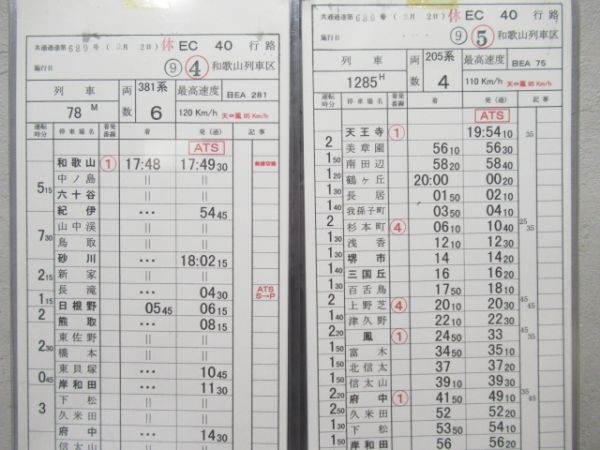 共通過達第689号 (3月 2日) 休 EC 40 行路
施行日 ⑨ ④ 和歌山列車区
列車 両数 381系 6 最高速度 BEA 281
78 M 120 Km/h 天⇔鳳 95 Km/h
運転時分 停車場名 着発番線 着 発(通) 記事
ATS
和歌山 ① 17:48 17:49 30
中ノ島 || ||
5 15 六十谷 || ||
紀伊 … 54 45
山中渓 || ||
7 30 鳥取 || ||
砂川 … 18:02 15
2 15 新家 || ||
長滝 … 04 30 ATS S→P
1 15 日根野 05 45 06 15
2 熊取 … 08 15
東佐野 || ||
2 30 橋本 || ||
東貝塚 … 10 45
0 45 岸和田 … 11 30
下松 || ||
3 久米田 || ||
府中 … 14 30
信太山 || ||
共通過達第689号 (3月 2日) 休 EC 40 行路
施行日 ⑨ ⑤ 和歌山列車区
列車 両数 205系 4 最高速度 BEA 75
1285 H 110 Km/h 天⇔鳳 95 Km/h
運転時分 停車場名 着発番線 着 発(通) 記事
ATS
天王寺 ① 19:54 10 35
2 美章園 56 10 56 30
1 50 南田辺 58 20 58 40
1 20 鶴ヶ丘 20:00 00 20
1 30 長居 01 50 02 10
1 40 我孫子町 03 50 04 10
2 杉本町 ④ 06 10 10 40 25 35
1 30 浅香 12 10 12 30
1 30 堺市 14 14 20
1 40 三国丘 16 16 20
1 30 百舌鳥 17 50 18 10
2 上野芝 ④ 20 10 20 30 45 45
1 40 津久野 22 10 22 30
2 20 鳳 ① 24 50 33 45
1 50 富木 34 50 35 10
1 50 北信太 37 37 20
1 50 信太山 39 10 39 30
2 20 府中 ① 41 50 49 10 35 45
2 50 久米田 52 52 20
1 40 下松 54 54 20
1 40 岸和田 56 56 20